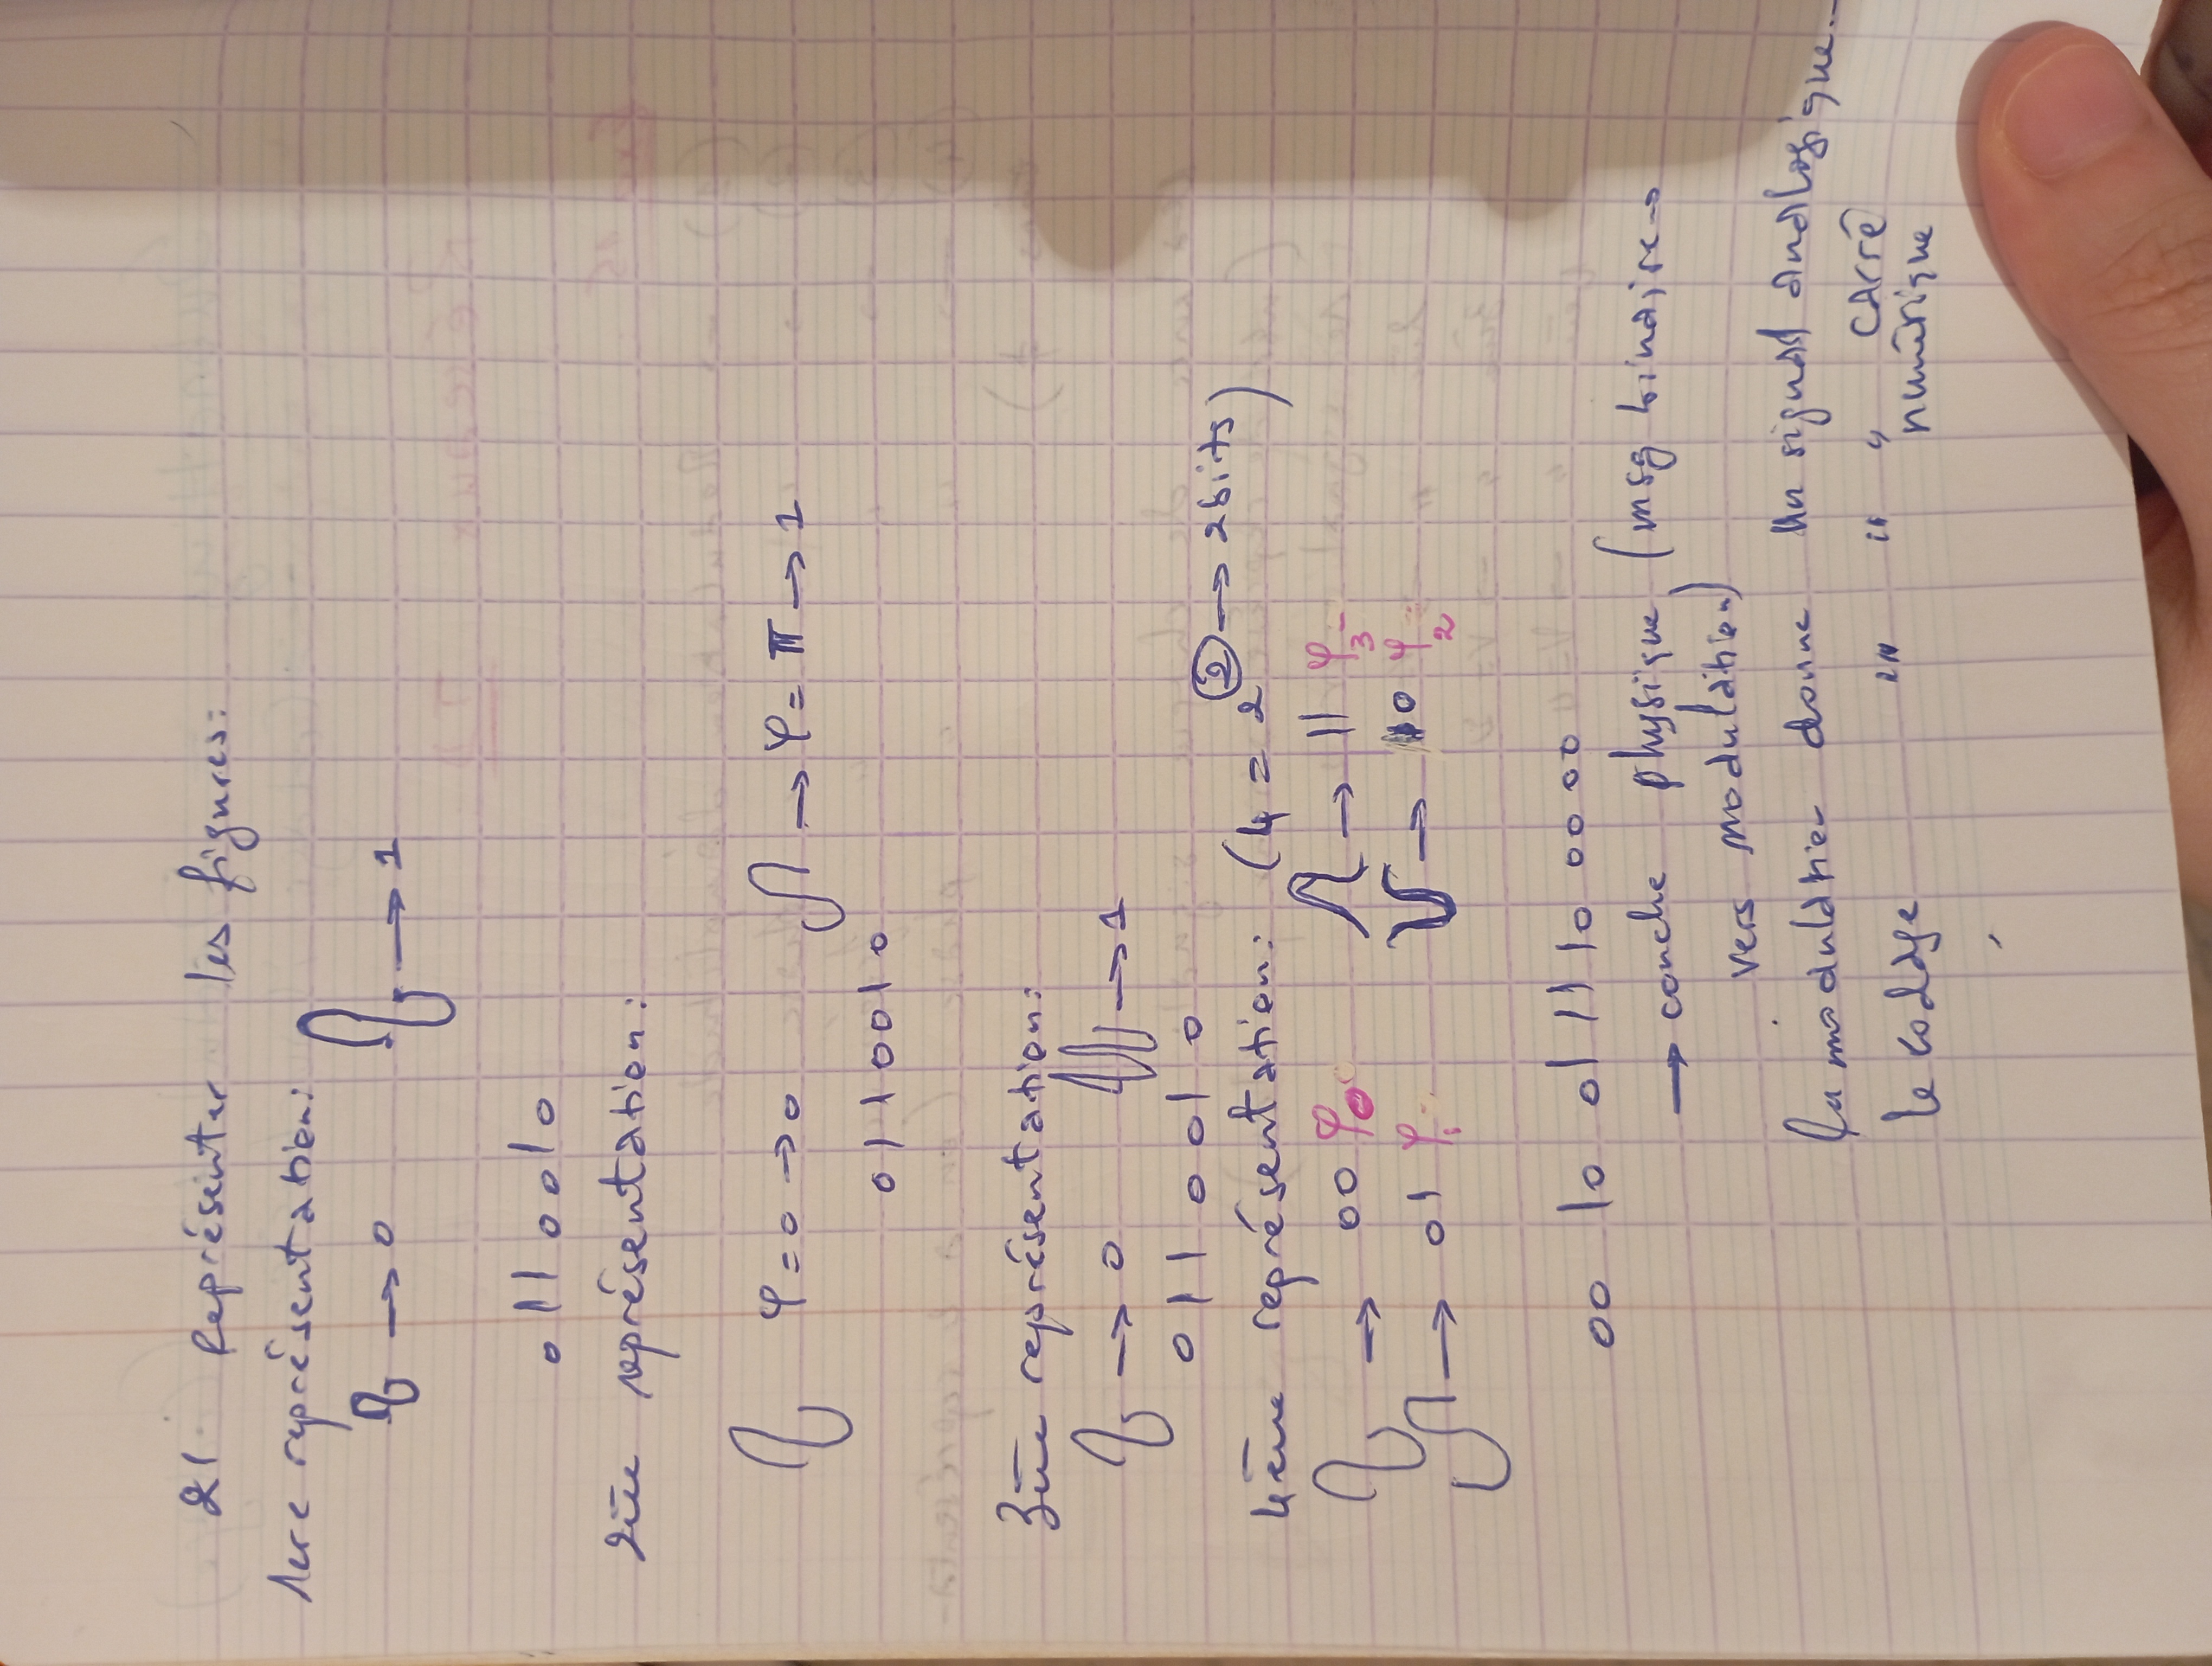 2/ Représenter les figures:
1ere représentation:
→ 0 → 1
0 1 1 0 0 1 0
2ème représentation:
φ = 0 → 0 → φ = π → 1
0 1 1 0 0 1 0
3ème représentation:
→ 0 → 1
0 1 1 0 0 1 0
4ème représentation: (4 = 2² → 2bits)
→ 00 φ0 → 11 φ3
→ 01 φ1 → 10 φ2
00 10 01 11 10 00 00
→ couche physique (msg binaire →
vers modulation)
La modulation donne un signal analogique
le codage " " " carré
numérique